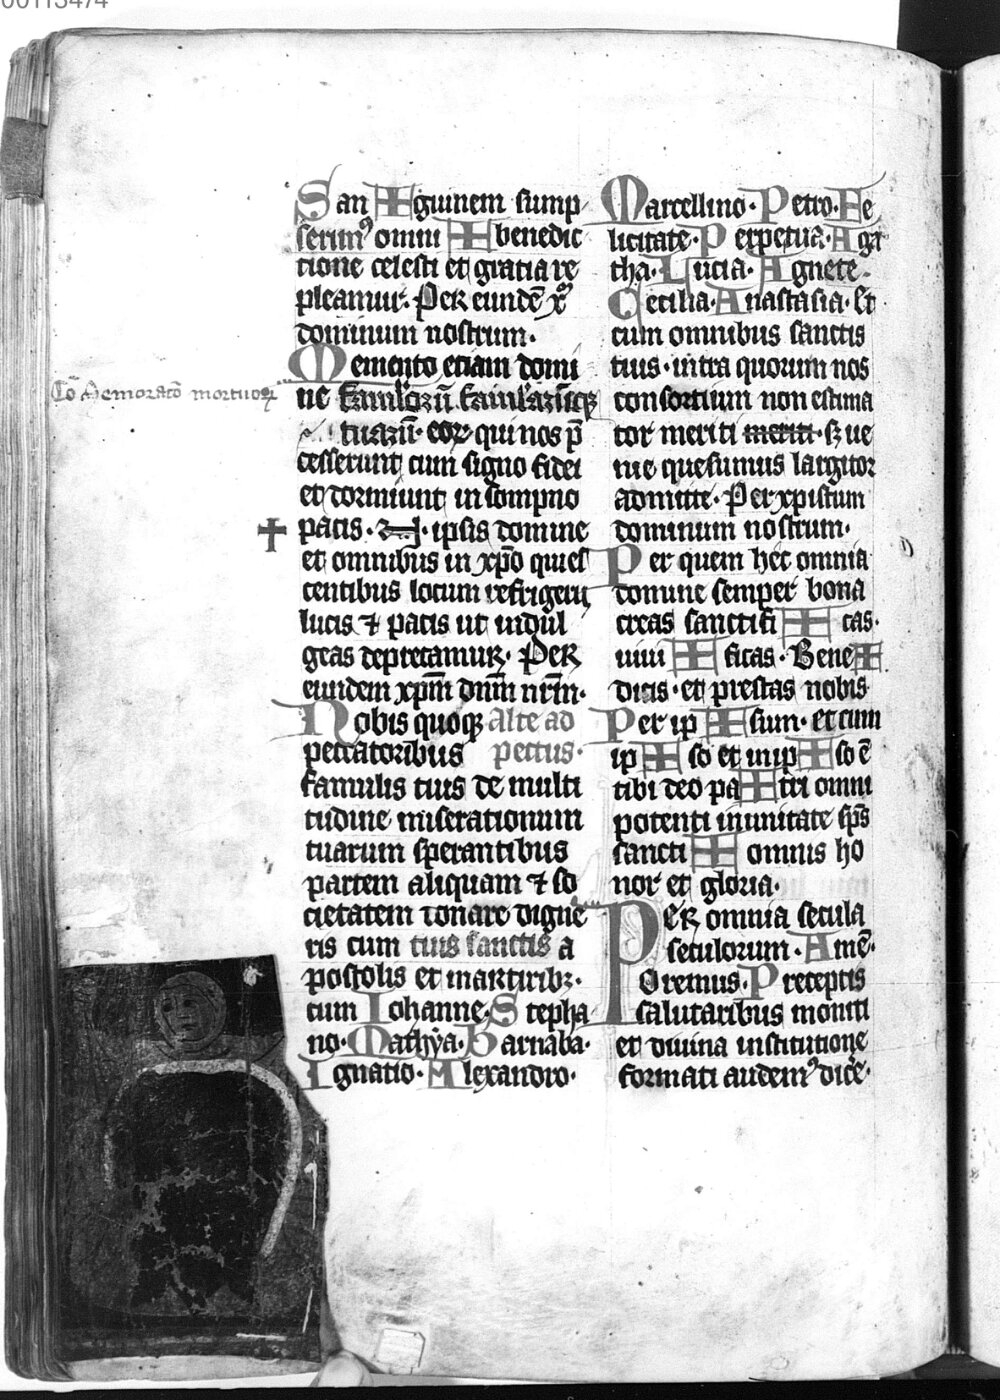 00113474
San ✠ guinem sump
serimꝰ omni ✠ benedic
tione celesti et gratia re
pleamur. Per eundē xp̄m
dominum nostrum.
Memento etiam domi
Cō Memoratō mortuoꝝ
ne famuloꝝū famulaꝝūqꝫ
tuaꝝū. eoꝝ qui nos p̄
cesserunt cum signo fidei
et dormiunt in sompno
✝ pacis. ipsis domine
et omnibus in xp̄o quies
centibus locum refrigerii
lucis ⁊ pacis ut indul
geas deprecamur. Per
eundem xpm̄ dnm̄ nr̄m.
Nobis quoqꝫ Alte ad
peccatoribus pectus.
famulis tuis de multi
tudine miserationum
tuarum sperantibus
partem aliquam ⁊ so
cietatem donare digne
ris cum tuis sanctis a
postolis et martiribꝫ.
cum Iohanne. Stepha
no. Mathya. Barnaba.
Ignatio. Alexandro.
Marcellino. Petro. Fe
licitate. Perpetua. Aga
tha. Lucia. Agnete.
Cecilia. Anastasia. et
cum omnibus sanctis
tuis. intra quorum nos
consortium non estima
tor meriti meriti. sꝫ ue
nie quesumus largitor
admitte. Per xpistum
dominum nostrum.
Per quem hec omnia
domine semper bona
creas sanctifi ✠ cas.
uiui ✠ ficas. Bene ✠
dicis. et prestas nobis
Per ip ✠ sum. et cum
ip ✠ so et in ip ✠ so ē
tibi deo pa ✠ tri omni
potenti in unitate sp̄s
sancti ✠ omnis ho
nor et gloria.
Per omnia secula
seculorum. Amē.
Oremus. Preceptis
salutaribus moniti
et diuina institutione
formati audemꝰ dicē.